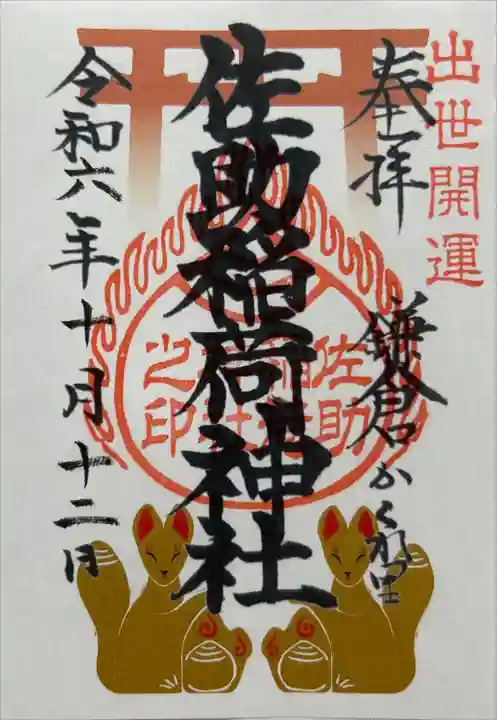 出世開運
奉拝
鎌倉かくれ里
佐助稲荷神社
佐助
稲荷神社
之印
令和六年十月十二日